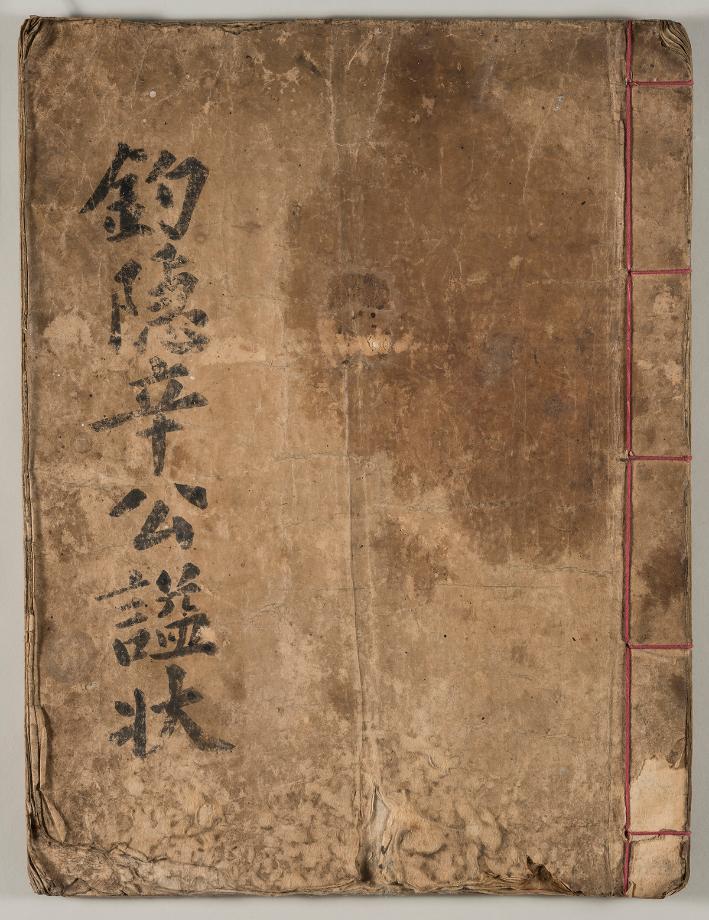 釣隱辛公諡狀